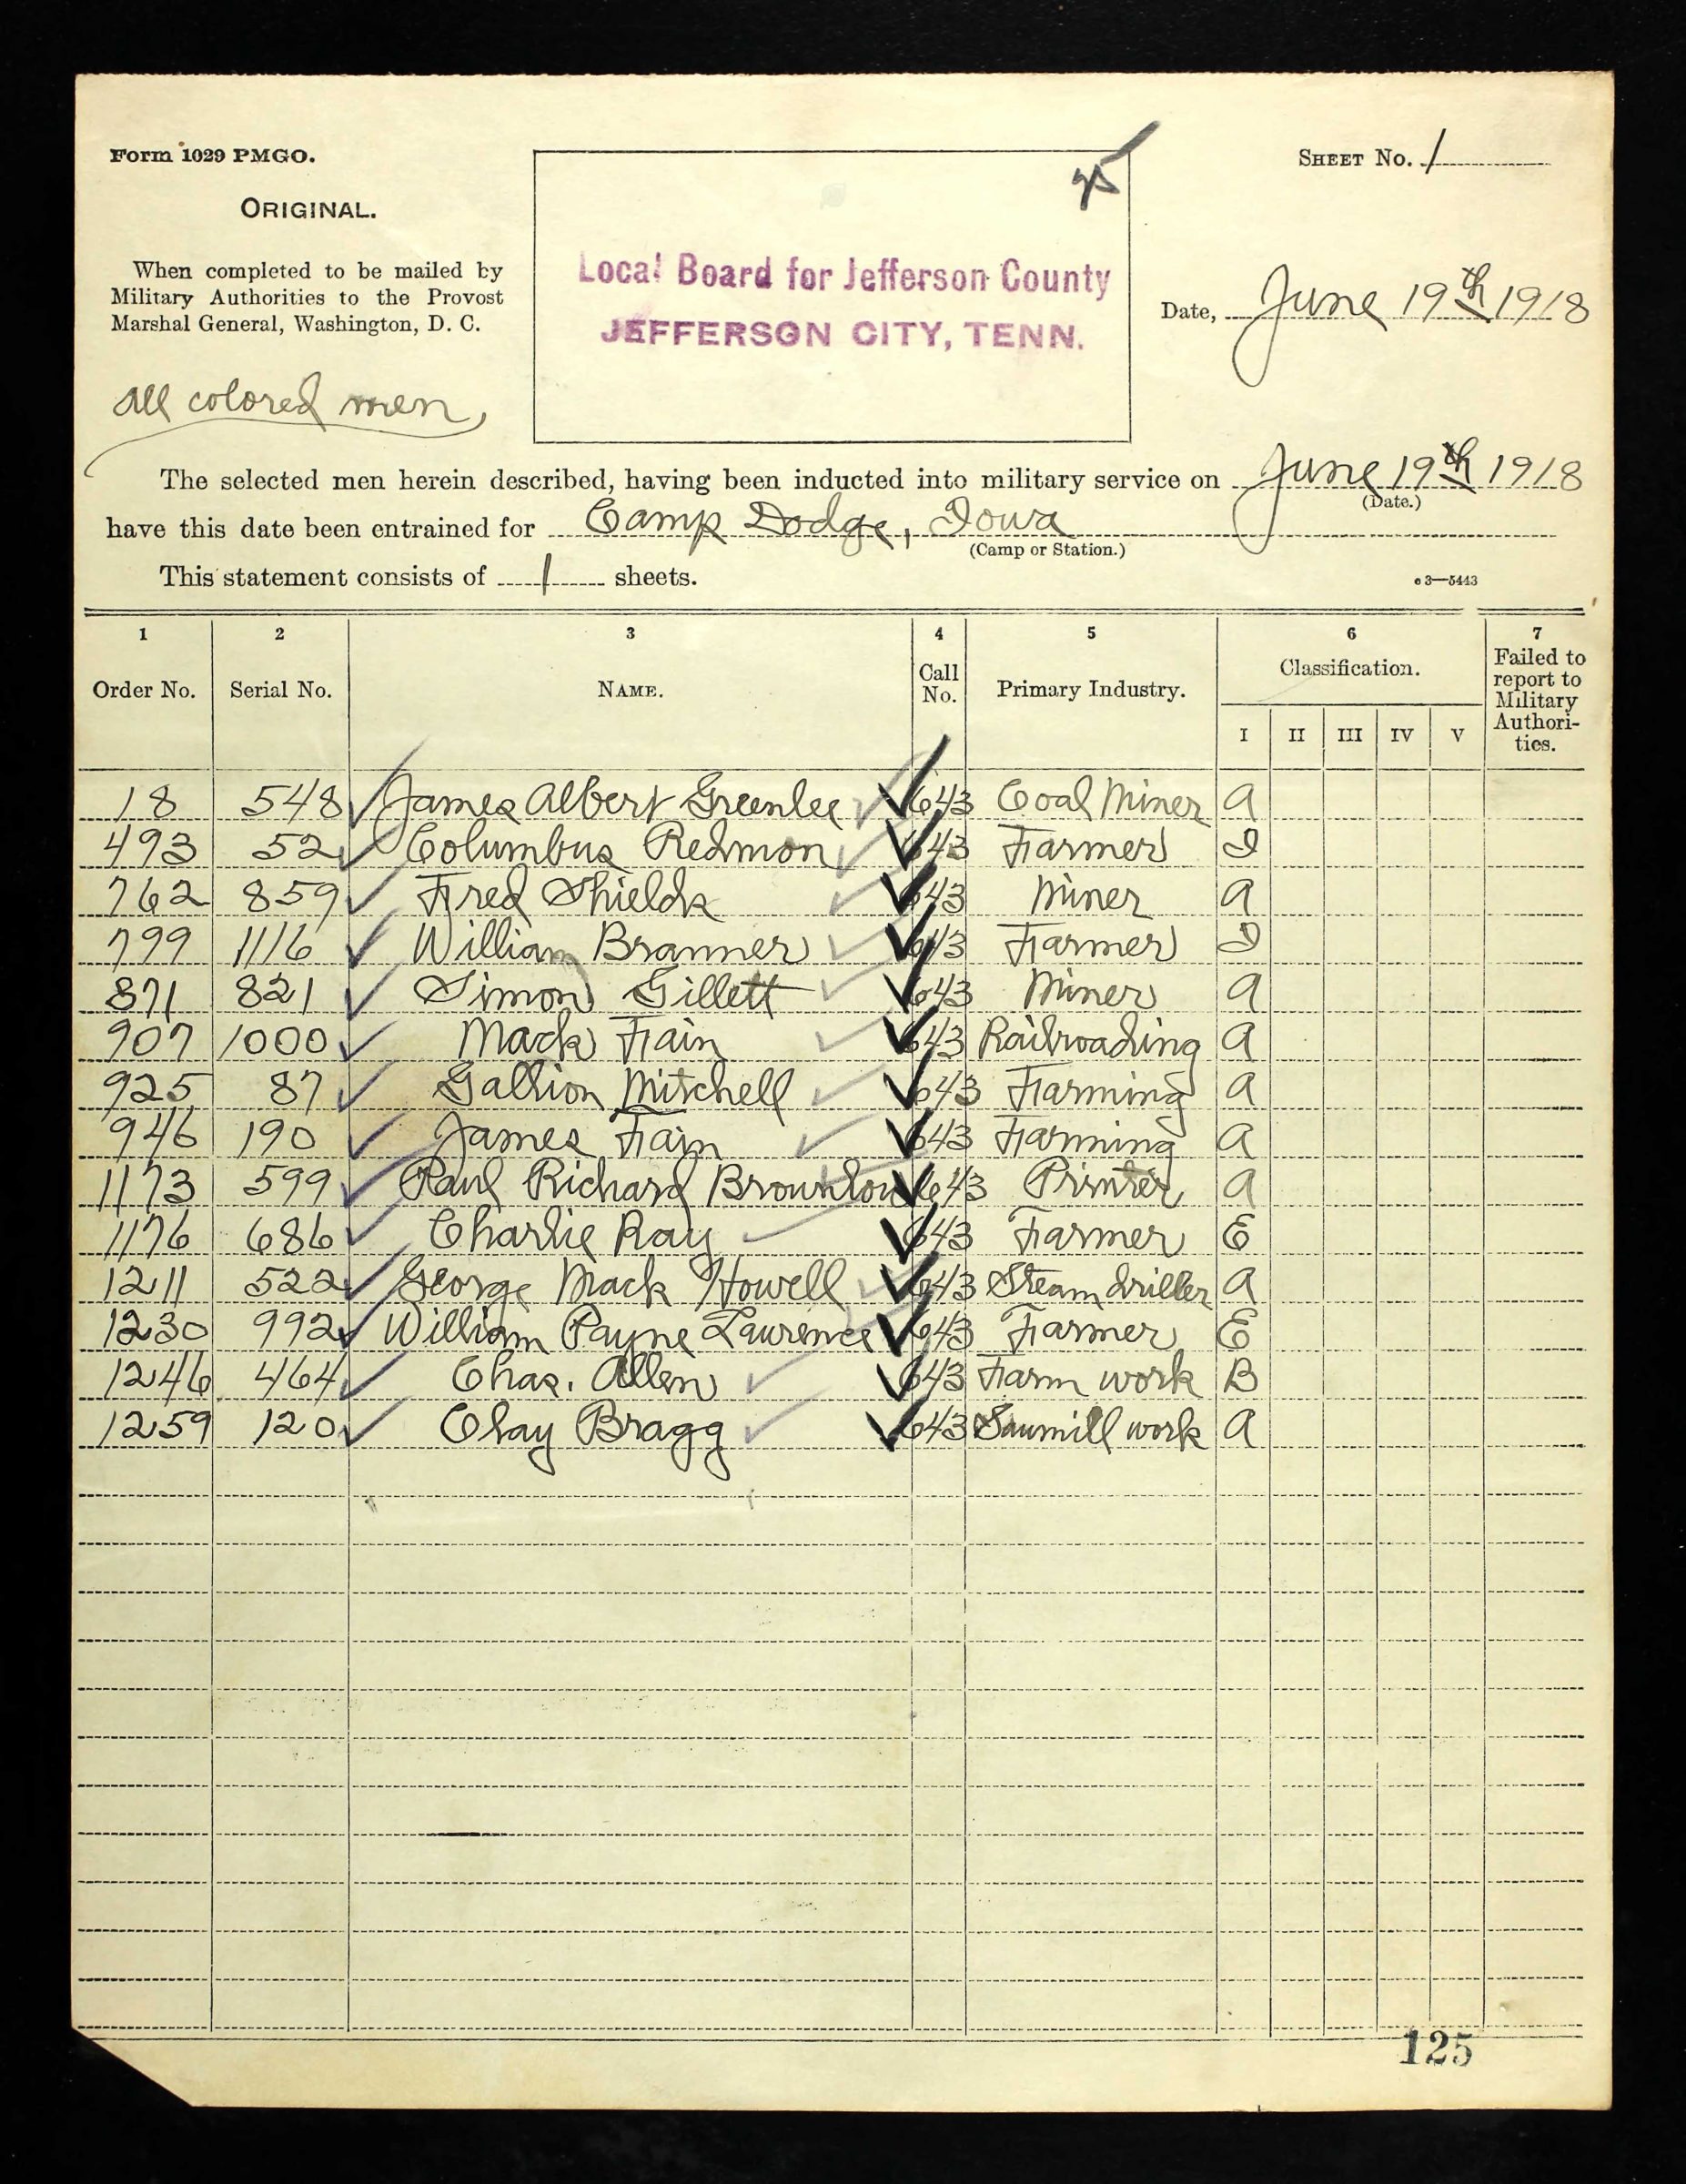 Form 1029 PMGO.
SHEET No. 1
ORIGINAL.
When completed to be mailed by
Military Authorities to the Provost
Marshal General, Washington, D. C.
Local Board for Jefferson County
JEFFERSON CITY, TENN.
Date, June 19th 1918
all colored men,
The selected men herein described, having been inducted into military service on June 19th 1918
(Date.)
have this date been entrained for Camp Dodge, Iowa
(Camp or Station.)
This statement consists of 1 sheets.
c3—5443
1 2 3 4 5 6 7
Order No. Serial No. NAME. Call No. Primary Industry. Classification. Failed to report to Military Authori-ties.
I II III IV V
18 548 James Albert Greenlee 643 Coal Miner A
493 52 Columbus Redmon 643 Farmer I
762 859 Fred Shields 643 Miner A
799 1116 William Branner 643 Farmer I
871 821 Simon Gillett 643 Miner A
907 1000 Mack Fain 643 Railroading A
925 87 Gallion Mitchell 643 Farming A
946 190 James Fain 643 Farming A
1173 599 Paul Richard Brownlow 643 Printer A
1176 686 Charlie Ray 643 Farmer E
1211 522 George Mack Howell 643 Steam driller A
1230 992 William Payne Laurence 643 Farmer E
1246 464 Chas. Allen 643 Farm work B
1259 120 Clay Bragg 643 Sawmill work A
125